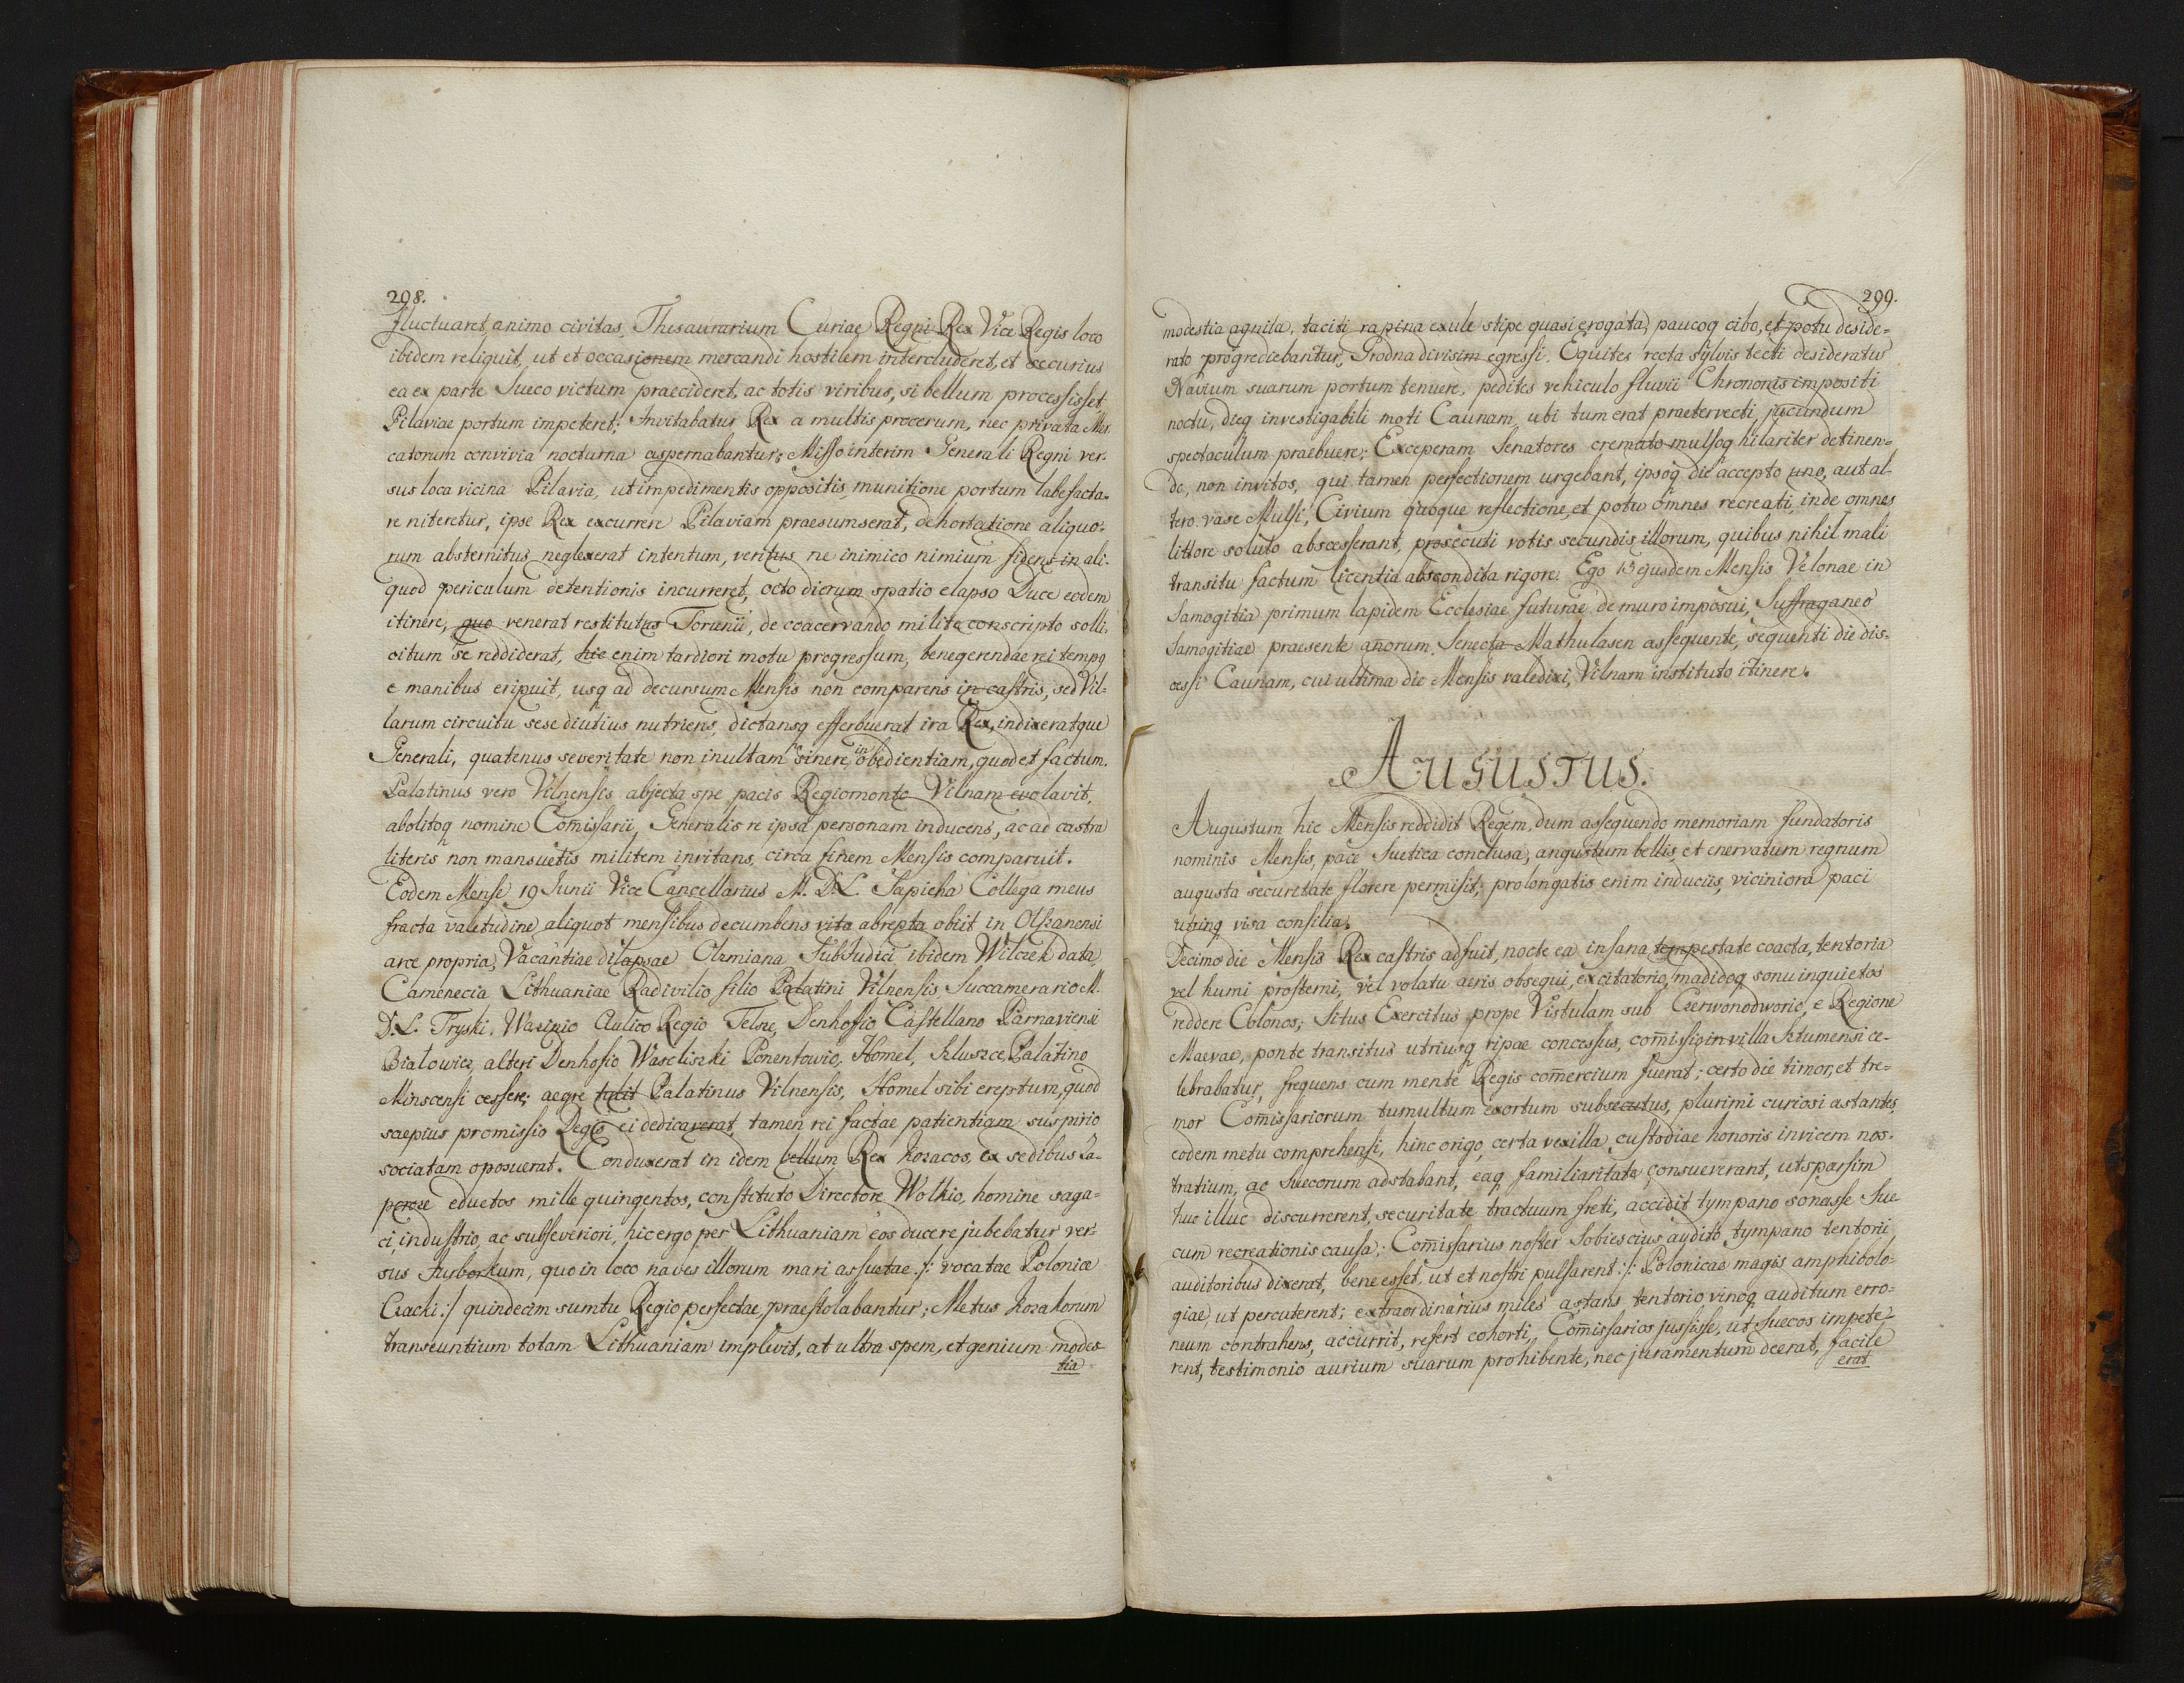 298.
fluctuaret animo civitas, Thesaurarium Curiae Regni Rex Vice Regis loco
ibidem reliquit, ut et occasionem mercandi hostilem intercluderet, et securius
ea ex parte Sueco victum praecideret, ac totis viribus, si bellum processisset
Pilaviae portum impeteret; Invitabatur Rex a multis procerum, nec privata Mer-
catorum convivia nocturna aspernabantur; Misso interim Generali Regni ver-
sus loca vicina Pilavia, ut impedimentis oppositis, munitione portum labefacta-
re niteretur, ipse Rex excurrere Pilaviam praesumserat, dehortatione aliquo-
rum absternitus neglexerat intentum, veritus ne inimico nimium fidens in ali-
quod periculum detentionis incurreret, octo dierum spatio elapso Duce eodem
itinere, quo venerat restitutus Torunii, de coacervando milite conscripto solli-
citum se reddiderat, hic enim tardiori motu progressum, benegerendae rei tempq
e manibus eripuit, usq ad decursum Mensis non comparens in castris, sed Vil-
larum circuitu sese diutius nutriens, dictansq efferbuerat ira Rex, indixeratque
Generali, quatenus severitate non inultam sinere inobedientiam, quod et factum.
Palatinus vero Vilnensis abjecta spe pacis Regiomonte Vilnam evolavit,
abolitoq nomine Com̄issarii, Generalis re ipsa personam inducens, ac ad castra
literis non mansuetis militem invitans, circa finem Mensis comparuit.
Eodem Mense 19 Junii Vice Cancellarius M. D. L. Sapieha Collega meus
fracta valetudine aliquot mensibus decumbens vita abrepta obiit in Olszanensi
arce propria, Vacantiae dilapsae Olzmiana SubJudici ibidem Wilczek data,
Camenecia Lithuaniae Radivilio filio Palatini Vilnensis Succamerario M.
D. L. Tryski, Wazinio Aulico Regio Telsze, Denhofio Castellano Parnaviensi
Bialowicz, alteri Denhofio Wasiliszki Ponentowio, Homel, Kluszce Palatino
Minscensi cessere; aegre tulit Palatinus Vilnensis, Homel sibi ereptum, quod
saepius promissio Regis ei dedicaverat, tamen rei factae patientiam suspirio
sociatam oposuerat. Conduxerat in idem bellum Rex Kozacos, ex sedibus Za-
peroze eductos mille quingentos, constituto Directore Wolkio, homine saga-
ci, industrio, ac subseveriori, hic ergo per Lithuaniam eos ducere jubebatur ver-
sus Jurborkum, quo in loco naves illorum mari assuetae /: vocatae Polonice
Czacki :/ quindecim sumtu Regio perfectae, praestolabantur; Metus Kozakorum
transeuntium totam Lithuaniam implevit, at ultra spem, et genium modes-
tia
299.
modestia agnila, taciti rapina exule stipe quasi erogata, paucoq cibo, et potu deside-
rato progrediebantur, Grodna divisim egressi. Equites recta sylvis tecti desideratu
Navium suarum portum tenuere, pedites vehiculo fluvii Chrononis impositi
noctu, dieq investigabili moti Caunam, ubi tum erat praetervecti, jucundum
spectaculum praebuere; Exceperam Senatores cremato mulsoq hilariter detinen-
do, non invitos, qui tamen perfectionem urgebant, ipsoq die accepto uno, aut al-
tero vase Mulsi, Civium quoque reflectione, et potu omnes recreati, inde omnes
littore soluto abscesserant, prosecuti votis secundis illorum, quibus nihil mali
transitu factum licentia abscondita rigore. Ego 15 ejusdem Mensis Velonae in
Samogitia primum lapidem Ecclesiae futurae de muro imposui, Suffraganeo
Samogitiae praesente an̄orum Senecta Mathulasen assequente, sequenti die dis-
cessi Caunam, cui ultima die Mensis valedixi, Vilnam instituto itinere.
AUGUSTUS.
Augustum hic Mensis reddidit Regem, dum assequendo memoriam fundatoris
nominis Mensis, pace Suetica conclusa, angustum bellis, et enervatum regnum
augusta securitate florere permisit; prolongatis enim induciis, viciniora paci
utrinq visa consilia.
Decimo die Mensis Rex castris adfuit, nocte ea insana tempestate coacta, tentoria
vel humi prosterni, vel volatu aeris obsequi, excitatorio, madidoq sonu inquietos
reddere Colonos; Situs Exercitus prope Vistulam sub Czerwonodworic, e Regione
Maevae, ponte transitus utriusq ripae concessus, com̄issio in villa Sztumensi ce-
lebrabatur, frequens cum mente Regis com̄ercium fuerat; certo die timor, et tre-
mor Com̄issariorum tumultum exortum subsecutus, plurimi curiosi astantes,
eodem metu comprehensi, hinc origo, certa vexilla custodiae honoris invicem nos-
tratium, ac Suecorum adstabant, eaq familiaritate consueverant, ut sparsim
huc illuc discurrerent, securitate tractuum freti, accidit tympano sonasse Sue-
cum recreationis causa; Com̄issarius noster Sobiescius audito tympano tentorii
auditoribus dixerat, bene esset, ut et nostri pulsarent :/: Polonicae magis amphibolo-
giae, ut percuterent; extraordinarius miles astans tentorio vinoq auditum erro-
neum contrahens, accurrit, refert cohorti, Com̄issarios jussisse, ut Suecos impete-
rent, testimonio aurium suarum prohibente, nec juramentum deerat, facile
erat